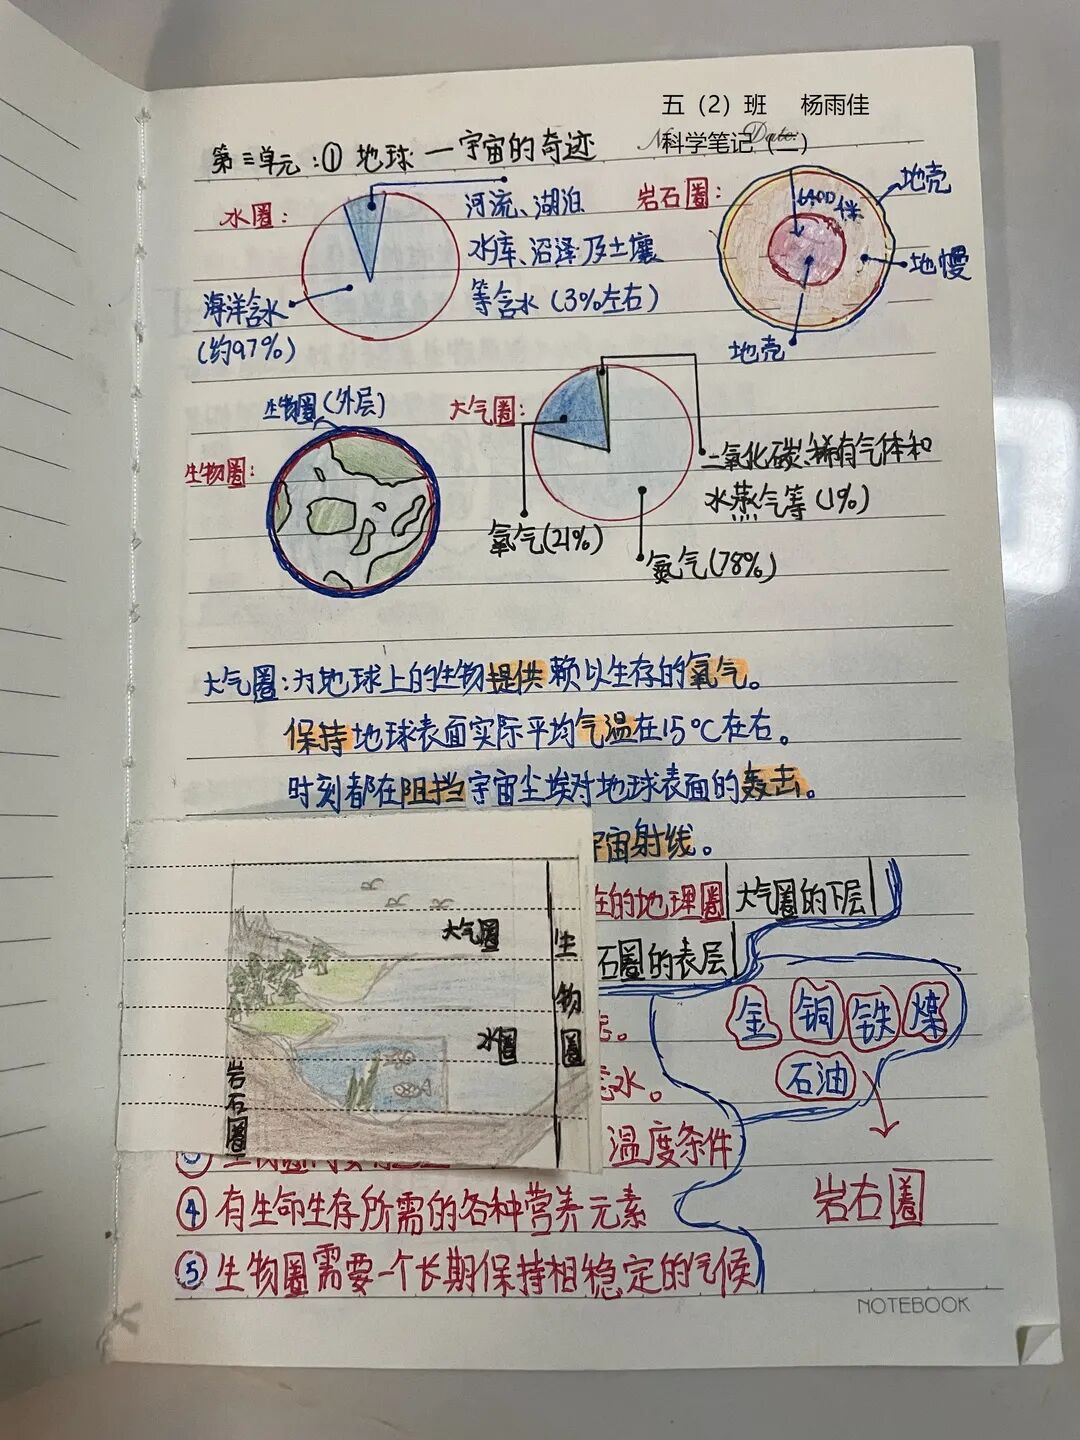 五（2）班 杨雨佳
科学笔记（二）
第三单元:① 地球—宇宙的奇迹
水圈:
河流、湖泊
水库、沼泽及土壤
等含水（3%左右）
海洋含水
(约97%)
岩石圈:
地壳
6400
地慢
地壳
生物圈(外层)
生物圈:
大气圈:
二氧化碳、稀有气体和
水蒸气等（1%）
氧气(21%)
氮气(78%)
大气圈:为地球上的生物提供赖以生存的氧气。
保持地球表面实际平均气温在15℃在右。
时刻都在阻挡宇宙尘埃对地球表面的轰击。
宇宙射线。
在的地理圈 大气圈的下层
石圈的表层
大气圈
水圈
生物圈
岩石圈
金 铜 铁 煤
石油
水。
③
温度条件
岩右圈
④有生命生存所需的各种营养元素
⑤生物圈需要一个长期保持相稳定的气候
NOTEBOOK